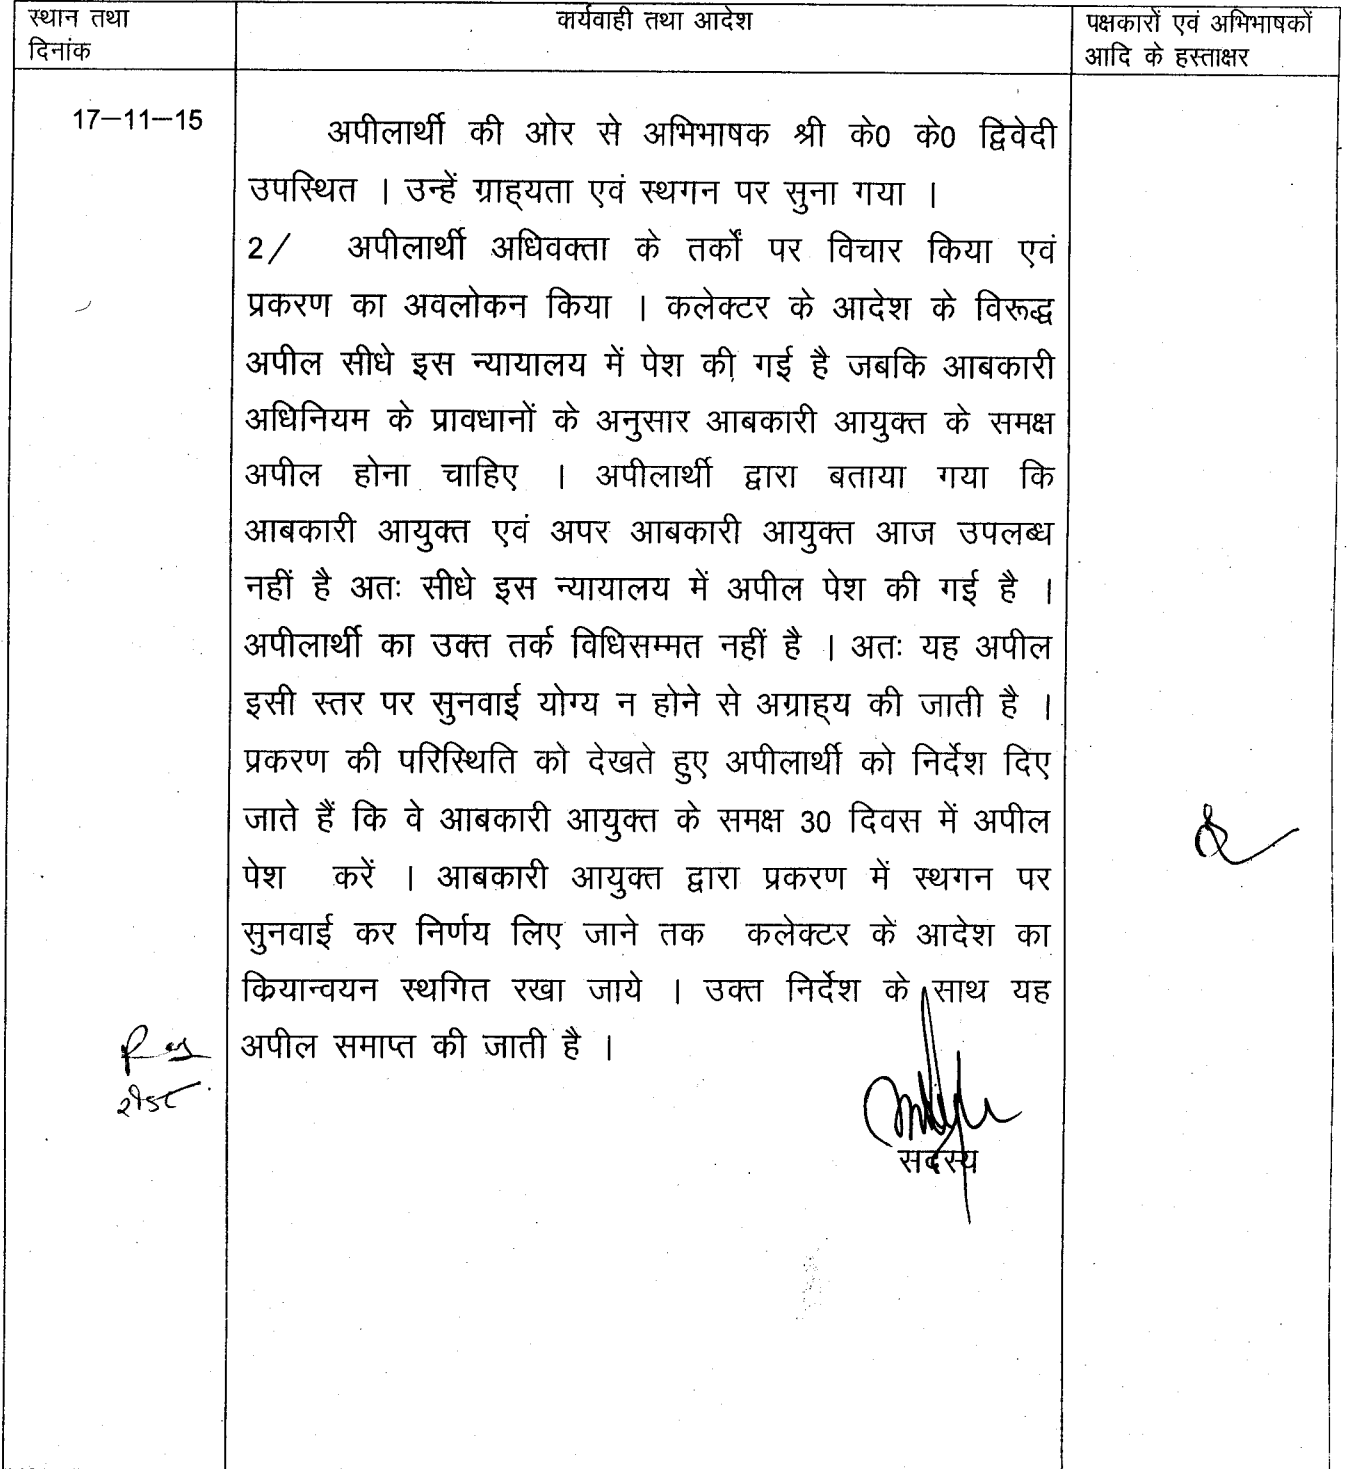 स्थान तथा
दिनांक
कार्यवाही तथा आदेश
पक्षकारों एवं अभिभाषकों
आदि के हस्ताक्षर
17–11–15
अपीलार्थी की ओर से अभिभाषक श्री के0 के0 द्विवेदी
उपस्थित । उन्हें ग्राह्यता एवं स्थगन पर सुना गया ।
2/ अपीलार्थी अधिवक्ता के तर्कों पर विचार किया एवं
प्रकरण का अवलोकन किया । कलेक्टर के आदेश के विरूद्ध
अपील सीधे इस न्यायालय में पेश की गई है जबकि आबकारी
अधिनियम के प्रावधानों के अनुसार आबकारी आयुक्त के समक्ष
अपील होना चाहिए । अपीलार्थी द्वारा बताया गया कि
आबकारी आयुक्त एवं अपर आबकारी आयुक्त आज उपलब्ध
नहीं है अतः सीधे इस न्यायालय में अपील पेश की गई है ।
अपीलार्थी का उक्त तर्क विधिसम्मत नहीं है । अतः यह अपील
इसी स्तर पर सुनवाई योग्य न होने से अग्राह्य की जाती है ।
प्रकरण की परिस्थिति को देखते हुए अपीलार्थी को निर्देश दिए
जाते हैं कि वे आबकारी आयुक्त के समक्ष 30 दिवस में अपील
पेश करें । आबकारी आयुक्त द्वारा प्रकरण में स्थगन पर
सुनवाई कर निर्णय लिए जाने तक कलेक्टर के आदेश का
कियान्वयन स्थगित रखा जाये । उक्त निर्देश के साथ यह
अपील समाप्त की जाती है ।
सदस्य